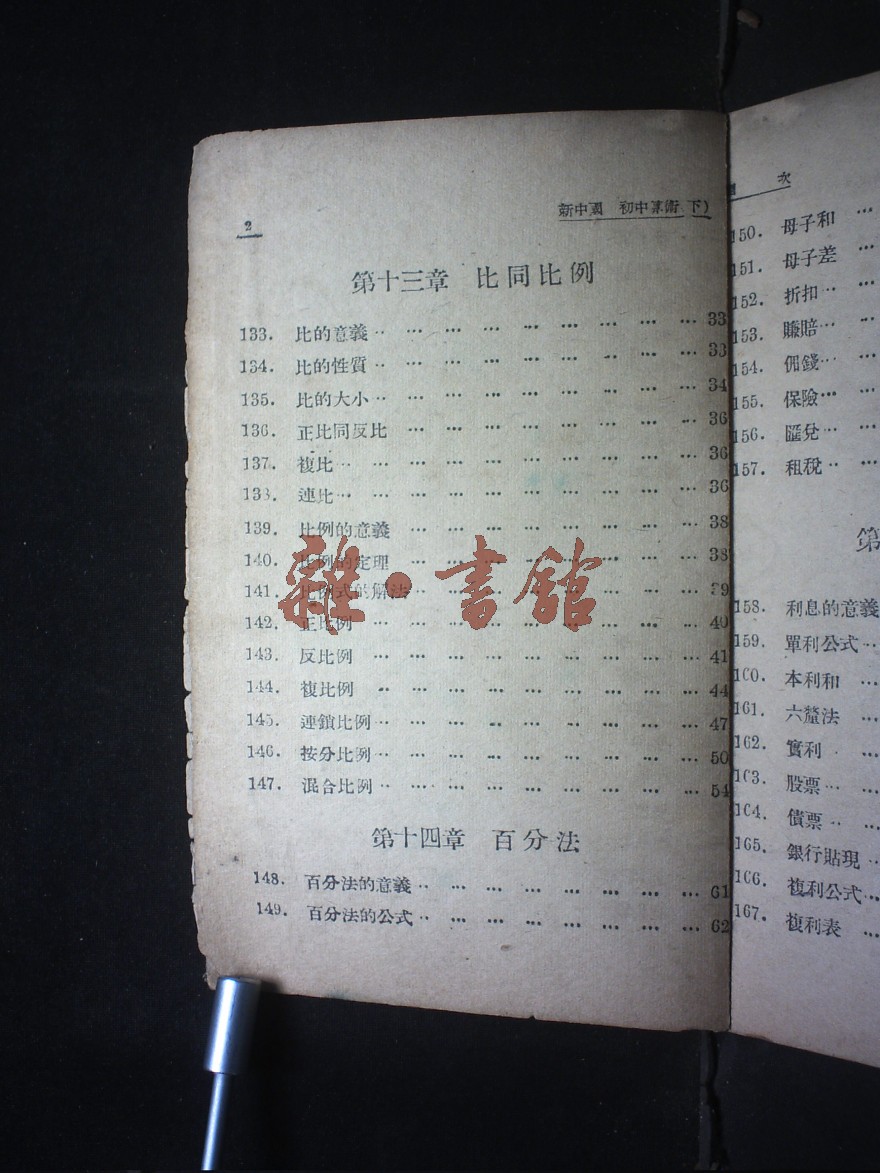 2
新中國 初中算術(下)
第十三章 比同比例
133. 比的意義 … … … … … … … … … 33
134. 比的性質 … … … … … … … … … 33
135. 比的大小 … … … … … … … … … 34
136. 正比同反比 … … … … … … … … 36
137. 複比 … … … … … … … … … … 36
138. 連比 … … … … … … … … … … 36
139. 比例的意義 … … … … … … … … 38
140. 比例的定理 … … … … … … … … 38
141. 比例式的解法 … … … … … … … … 39
142. 正比例 … … … … … … … … … 40
143. 反比例 … … … … … … … … … 41
144. 複比例 … … … … … … … … … 44
145. 連鎖比例 … … … … … … … … … 47
146. 按分比例 … … … … … … … … … 50
147. 混合比例 … … … … … … … … … 54
第十四章 百分法
148. 百分法的意義 … … … … … … … … 61
149. 百分法的公式 … … … … … … … … 62
雜·書館
次
150. 母子和 …
151. 母子差 …
152. 折扣 …
153. 賺賠 …
154. 佣錢 …
155. 保險 …
156. 匯兌 …
157. 租稅 …
第
158. 利息的意義
159. 單利公式 …
160. 本利和 …
161. 六釐法 …
162. 實利 …
163. 股票 …
164. 債票 …
165. 銀行貼現 …
166. 複利公式 …
167. 複利表 …